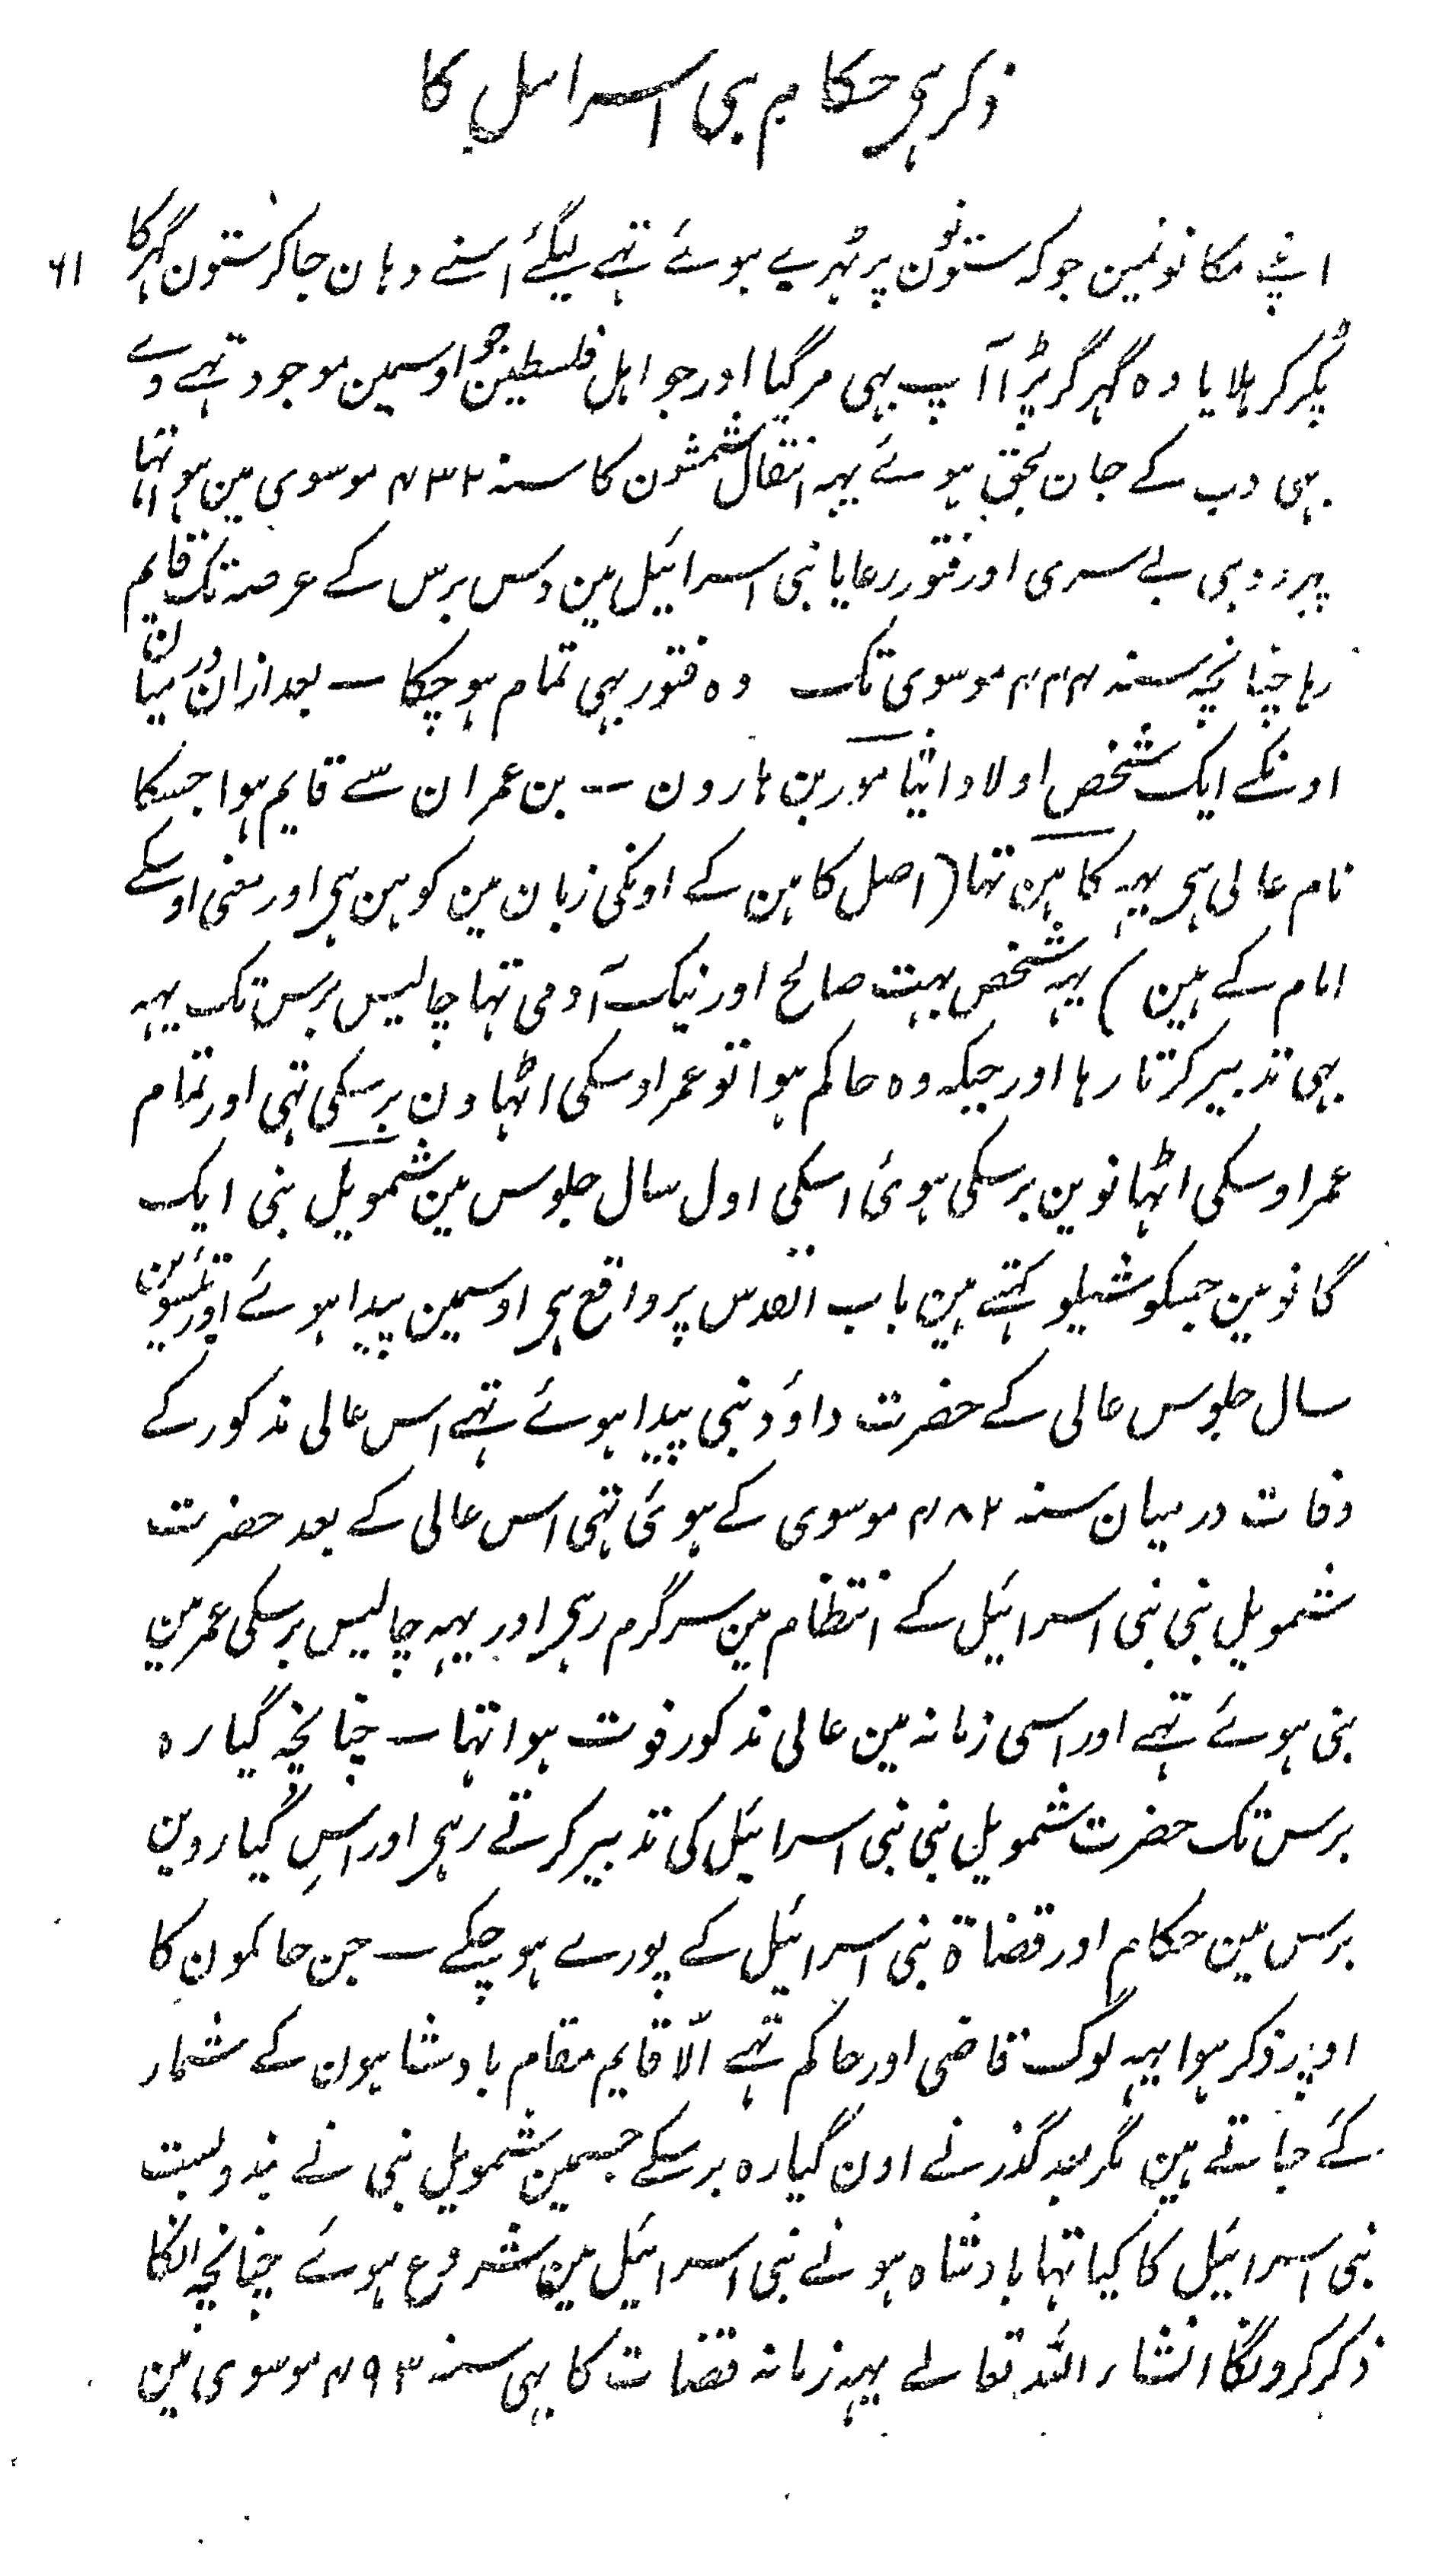 ذکر ہی حکام بنی اسرائیل کا
۶۱
اپنے مکانونمین جو کہ ستونون پر ٹہرے ہوئے تہے لیگئے اسنے وہان جاکر ستون گہر کا
پکڑ کر ہلایا وہ گہر گر پڑا آپ بہی مرگیا اور جو اہل فلسطین جو اوسمین موجود تہے وے
بہی دب کے جان بحق ہوئے یہہ انتقال شمشون کا سنہ ۴۳۲ موسوی مین ہوا تہا
پہر وہی بے سری اور فتور رعایا بنی اسرائیل مین دس برس کے عرصہ تک قایم
رہا چنانچہ سنہ ۴۴۲ موسوی تک وہ فتور بہی تمام ہوچکا — بعد ازان درمیان
اونکے ایک شخص اولاد ایثامور بن ہارون -- بن عمران سے قایم ہوا جسکا
نام عالی ہی یہہ کاہن تہا (اصل کاہن کے اونکی زبان مین کوہن ہی اور معنی اوسکے
امام کے ہین) یہہ شخص بہت صالح اور نیک آدمی تہا چالیس برس تک یہہ
بہی تدبیر کرتا رہا اور جبکہ وہ حاکم ہوا تو عمر اوسکی اٹہاون برسکی تہی اور تمام
عمر اوسکی اٹہانوین برسکی ہوئی اسکی اول سال جلوس مین شمویل نبی ایک
گانومین جسکو شیلو کہتے ہین باب القدس پر واقع ہی اوسمین پیدا ہوئے اور تیئسوین
سال جلوس عالی کے حضرت داؤد نبی پیدا ہوئے تہے اس عالی مذکور کے
وفات درمیان سنہ ۴۸۲ موسوی کے ہوئی تہی اس عالی کے بعد حضرت
شمویل نبی بنی اسرائیل کے انتظام مین سرگرم رہی اور یہہ چالیس برسکی عمر مین
نبی ہوئے تہے اور اسی زمانہ مین عالی مذکور فوت ہوا تہا — چنانچہ گیارہ
برس تک حضرت شمویل نبی بنی اسرائیل کی تدبیر کرتے رہی اور اس گیاروین
برس مین حکام اور قضاۃ بنی اسرائیل کے پورے ہوچکے — جن حاکمون کا
اوپر ذکر ہوا یہہ لوگ قاضی اور حاکم تہے الّا قایم مقام بادشاہون کے شمار
کئے جاتے ہین مگر بعد گذرنے اون گیارہ برسکے جسمین شمویل نبی نے بندوبست
بنی اسرائیل کا کیا تہا بادشاہ ہونے بنی اسرائیل مین شروع ہوئے چنانچہ انکا
ذکر کرونگا انشاء اللہ تعالے یہہ زمانہ قضات کا بہی سنہ ۴۹۳ موسوی مین